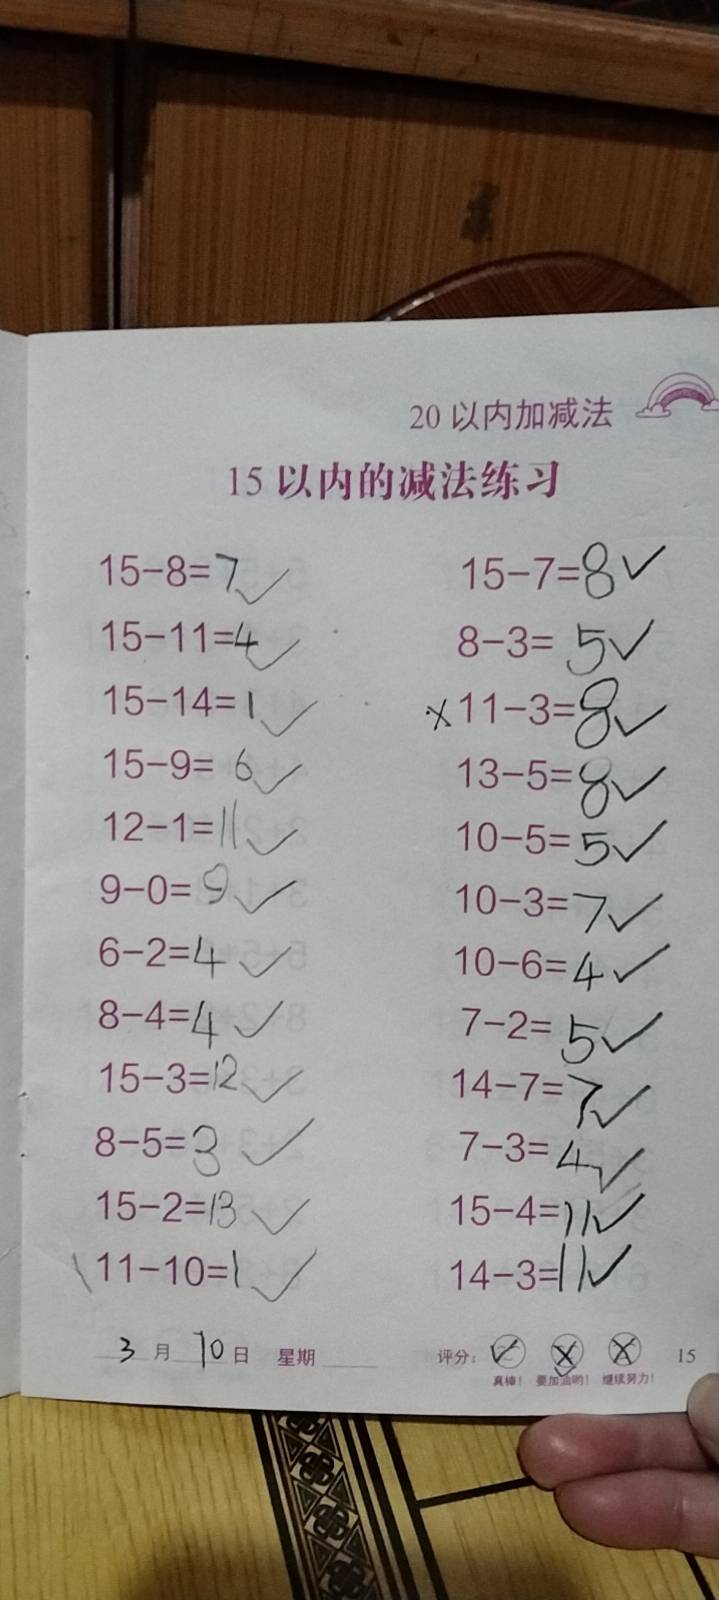 20 以内加减法
15 以内的减法练习
15-8=7✓
15-11=4✓
15-14=1✓
15-9=6✓
12-1=11✓
9-0=9✓
6-2=4✓
8-4=4✓
15-3=12✓
8-5=3✓
15-2=13✓
11-10=1✓
15-7=8✓
8-3=5✓
×11-3=8✓
13-5=8✓
10-5=5✓
10-3=7✓
10-6=4✓
7-2=5✓
14-7=7✓
7-3=4✓
15-4=11✓
14-3=11✓
3月10日 星期____ 评分：
真棒！ 要加油哟！ 继续努力！
15